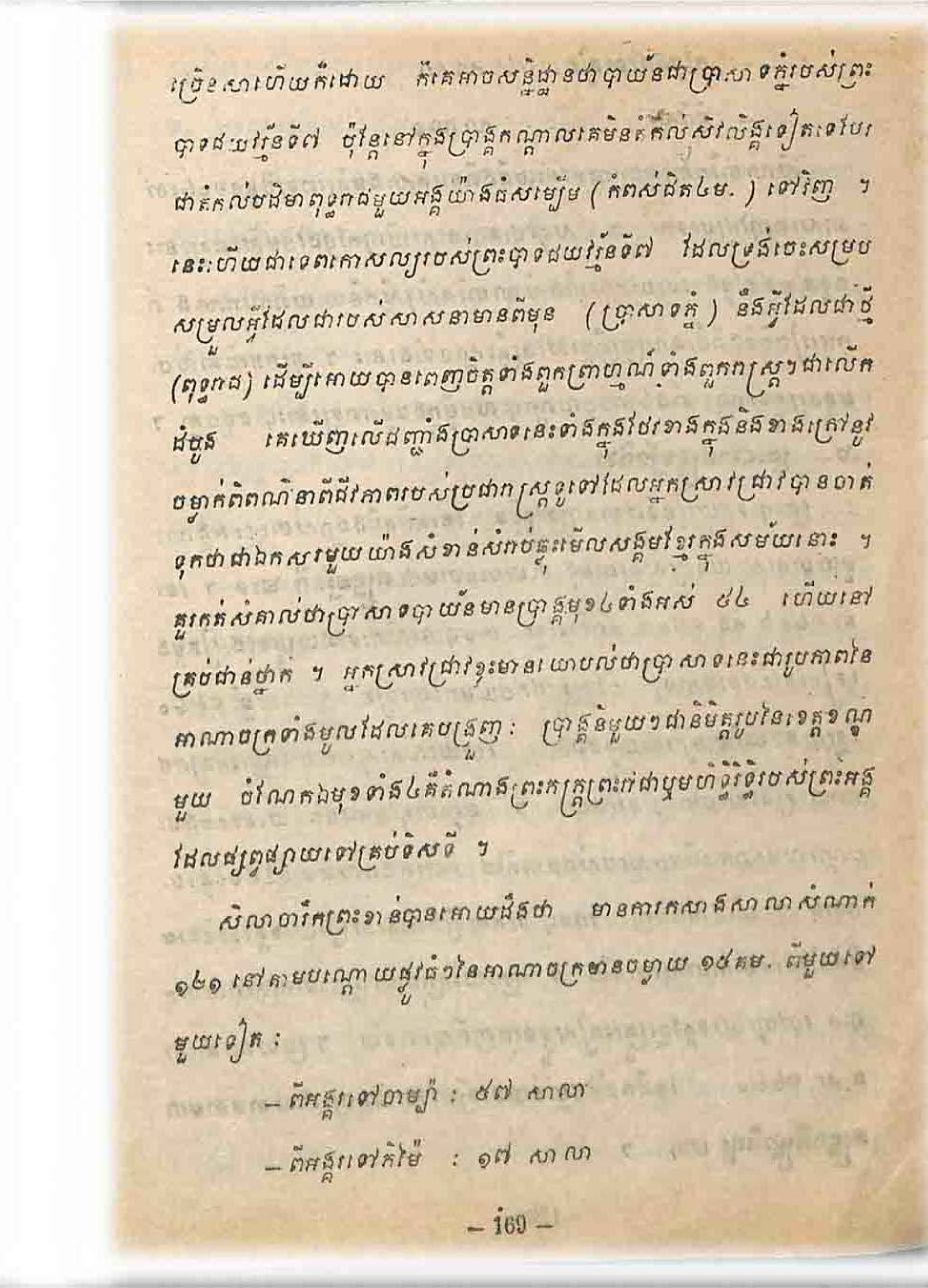 ច្រើនសាហើយក៏ដោយ ក៏គេអាចសន្និដ្ឋានថាបាយ័នជាប្រាសាទភ្នំរបស់ព្រះ
បាទជយវរ្ម័នទី៧ ប៉ុន្តែនៅក្នុងប្រាង្គកណ្ដាលគេមិនតំកល់សិវលិង្គទៀតទេបែរ
ជាតំកល់បដិមាពុទ្ធរាជមួយអង្គយ៉ាងធំសម្បើម (កំពស់ជិត៤ម. ) ទៅវិញ ។
នេះហើយជាទេពកោសល្យរបស់ព្រះបាទជយវរ្ម័នទី៧ ដែលទ្រង់ចេះសម្រប
សម្រួលអ្វីដែលជារបស់សាសនាមានពីមុន (ប្រាសាទភ្នំ ) នឹងអ្វីដែលជាថ្មី
(ពុទ្ធរាជ) ដើម្បីអោយបានពេញចិត្តទាំងពួកព្រាហ្មណ៍ ទាំងពួករាស្ត្រ។ជាលើក
ដំបូង គេឃើញលើជញ្ជាំងប្រាសាទនេះទាំងក្នុងថែវខាងក្នុងនិងខាងក្រៅនូវ
ចម្លាក់ពិពណ៌នាពីជីវភាពរបស់ប្រជារាស្ត្រទូទៅដែលអ្នកស្រាវជ្រាវបានចាត់
ទុកថាជាឯកសារមួយយ៉ាងសំខាន់សំរាប់ឆ្លុះមើលសង្គមខ្មែរក្នុងសម័យនោះ ។
គួរកត់សំគាល់ថាប្រាសាទបាយ័នមានប្រាង្គមុខ៤ទាំងអស់ ៥៤ ហើយនៅ
គ្រប់ជាន់ថ្នាក់ ។ អ្នកស្រាវជ្រាវខ្លះមានយោបល់ថាប្រាសាទនេះជារូបភាពនៃ
អាណាចក្រទាំងមូលដែលគេបង្រួញ : ប្រាង្គនិមួយៗជានិមិត្តរូបនៃខេត្តខណ្ឌ
មួយ ចំណែកឯមុខទាំង៤គឺតំណាងព្រះភក្ត្រព្រះរាជាឬមហិទ្ធិរិទ្ធិរបស់ព្រះអង្គ
ដែលផ្សព្វផ្សាយទៅគ្រប់ទិសទី ។
សិលាចារឹកព្រះខាន់បានអោយដឹងថា មានការកសាងសាលាសំណាក់
១២១ នៅតាមបណ្ដោយផ្លូវធំៗនៃអាណាចក្រមានចម្ងាយ ១៥គម. ពីមួយទៅ
មួយទៀត :
– ពីអង្គរទៅចាម្ប៉ា : ៥៧ សាលា
– ពីអង្គរទៅភិម៉ៃ : ១៧ សាលា
– 169 –